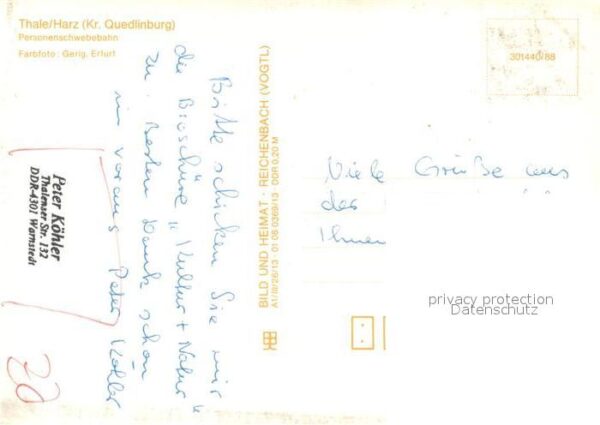 Thale/Harz (Kr. Quedlinburg)
Personenschwebebahn
Farbfoto: Gerig, Erfurt
301440/88
Bitte schicken Sie mir
die Broschüre „Kultur + Natur“
zu. Besten Dank schon
im voraus Peter Köhler
Peter Köhler
Thalenser Str. 132
DDR-4301 Warnstedt
20
BILD UND HEIMAT · REICHENBACH (VOGTL)
A1/III/26/13 · 01 08 0369/13 DDR 0,20 M
Viele Grüße aus
der
Ihnen
privacy protection
Datenschutz